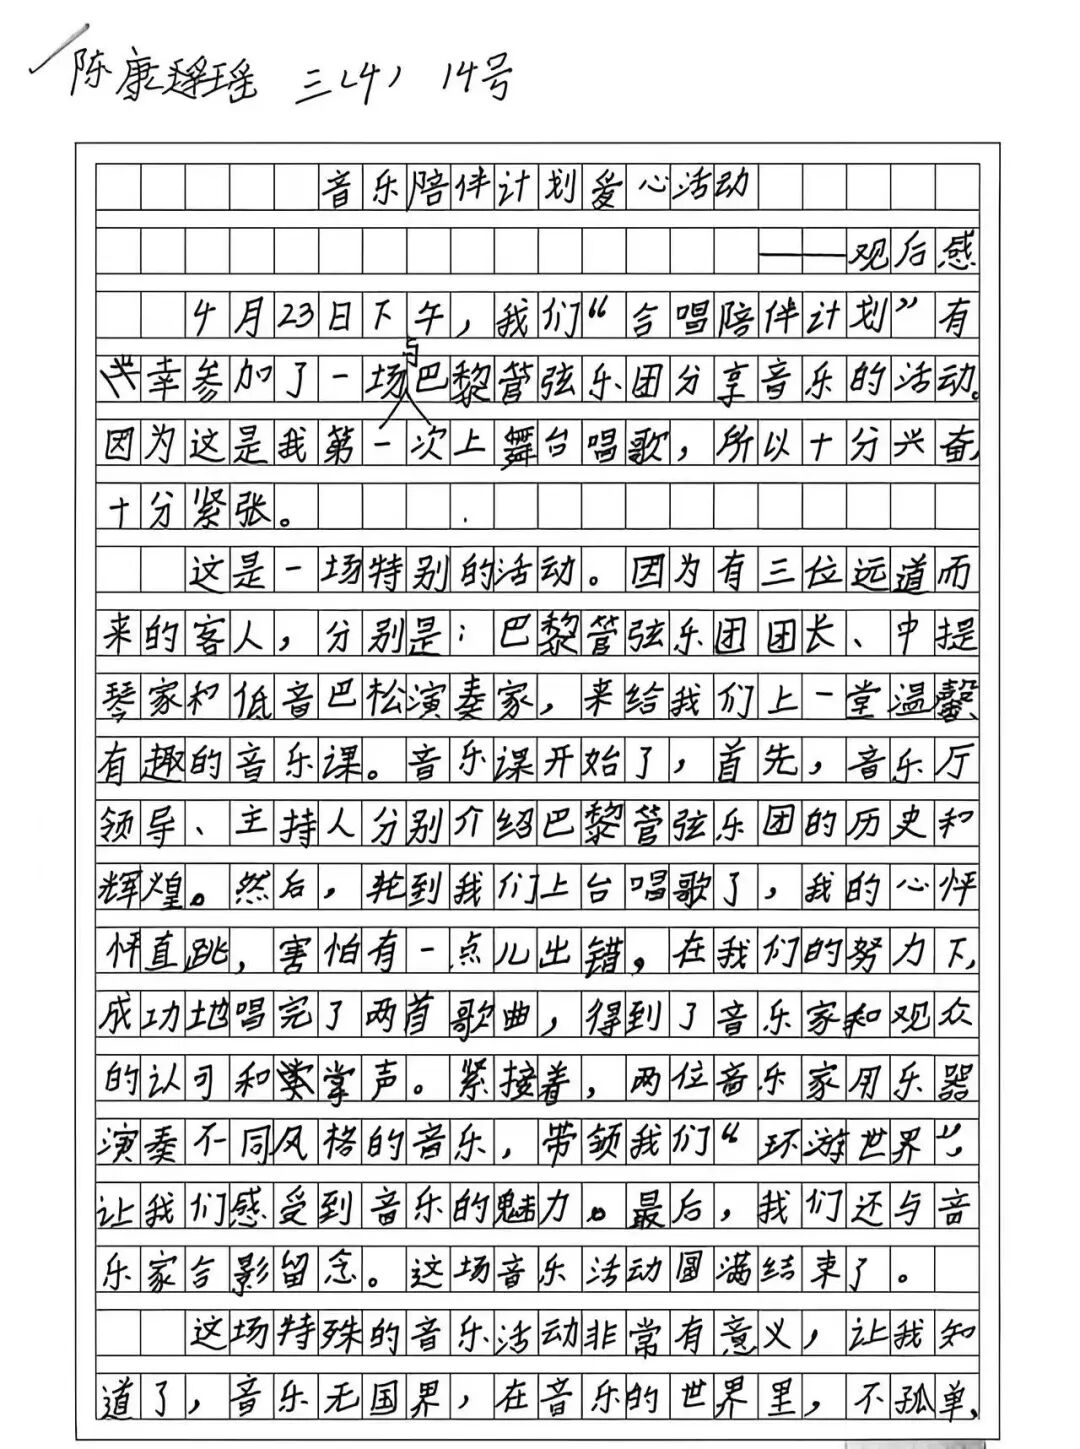 陈康瑶 三（4） 14号
音乐陪伴计划爱心活动
——观后感
4月23日下午，我们“合唱陪伴计划”有
幸参加了一场与巴黎管弦乐团分享音乐的活动。
因为这是我第一次上舞台唱歌，所以十分兴奋，
十分紧张。
这是一场特别的活动。因为有三位远道而
来的客人，分别是：巴黎管弦乐团团长、中提
琴家和低音巴松演奏家，来给我们上一堂温馨、
有趣的音乐课。音乐课开始了，首先，音乐厅
领导、主持人分别介绍巴黎管弦乐团的历史和
辉煌。然后，轮到我们上台唱歌了，我的心怦
怦直跳，害怕有一点儿出错。在我们的努力下，
成功地唱完了两首歌曲，得到了音乐家和观众
的认可和掌声。紧接着，两位音乐家用乐器
演奏不同风格的音乐，带领我们“环游世界”，
让我们感受到音乐的魅力。最后，我们还与音
乐家合影留念。这场音乐活动圆满结束了。
这场特殊的音乐活动非常有意义，让我知
道了，音乐无国界，在音乐的世界里，不孤单，